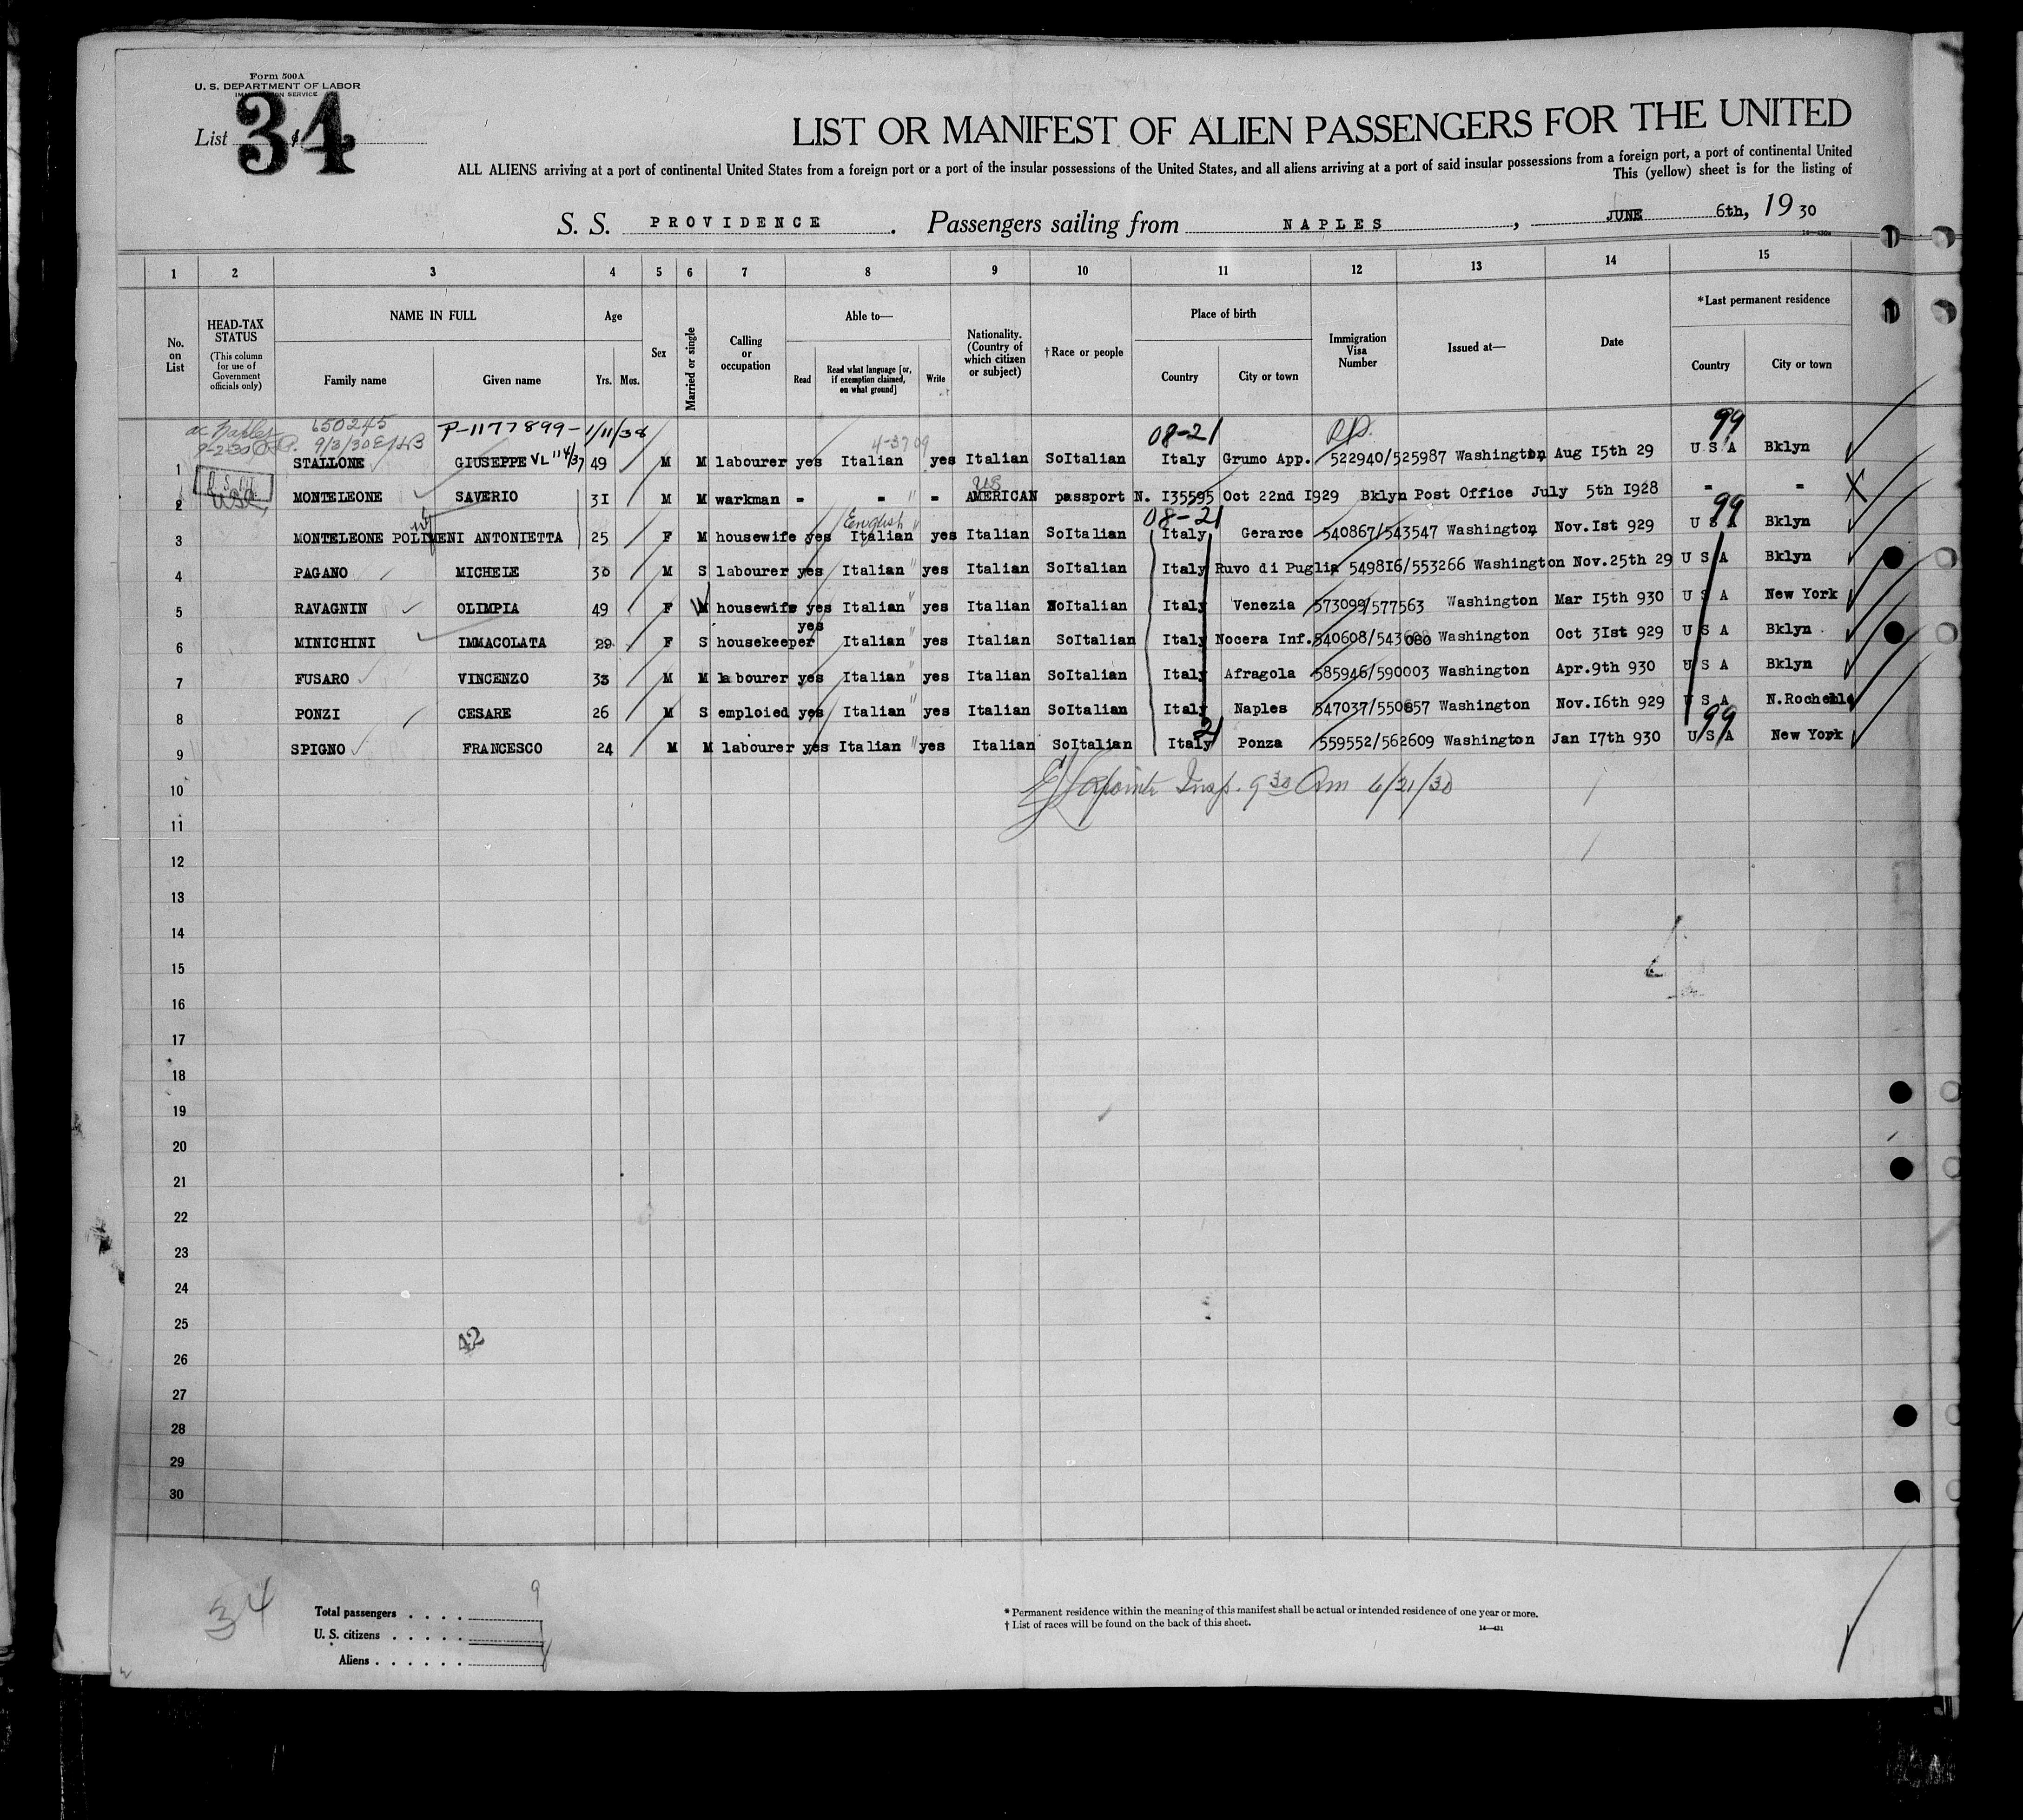 Form 500A
U. S. DEPARTMENT OF LABOR
IMMIGRATION SERVICE
List 34
LIST OR MANIFEST OF ALIEN PASSENGERS FOR THE UNITED
ALL ALIENS arriving at a port of continental United States from a foreign port or a port of the insular possessions of the United States, and all aliens arriving at a port of said insular possessions from a foreign port, a port of continental United
This (yellow) sheet is for the listing of
S. S. PROVIDENCE. Passengers sailing from NAPLES, JUNE 6th, 19 30
1 2 3 4 5 6 7 8 9 10 11 12 13 14 15
No. on List
HEAD-TAX STATUS (This column for use of Government officials only)
NAME IN FULL
Family name Given name
Age
Yrs. Mos.
Sex
Married or single
Calling or occupation
Able to—
Read Read what language [or, if exemption claimed, on what ground] Write
Nationality. (Country of which citizen or subject)
†Race or people
Place of birth
Country City or town
Immigration Visa Number
Issued at—
Date
*Last permanent residence
Country City or town
650245 P-1177899-1/11/38 08-21 99
9-2-30 9/3/30 4-3709
1 STALLONE GIUSEPPE VL 49 M M labourer yes Italian yes Italian SoItalian Italy Grumo App. 522940/525987 Washington, Aug I5th 29 U S A Bklyn
US
2 MONTELEONE SAVERIO 3I M M warkman - - " - AMERICAN passport N. I35595 Oct 22nd I929 Bklyn Post Office July 5th I928 - -
English 08-21 99
3 MONTELEONE POLIMENI ANTONIETTA 25 F M housewife yes Italian yes Italian SoItalian Italy Gerarce 540867/543547 Washington, Nov.Ist 929 U S A Bklyn
4 PAGANO MICHELE 30 M S labourer yes Italian " yes Italian SoItalian Italy Ruvo di Puglia 5498I6/553266 Washington Nov.25th 29 U S A Bklyn
5 RAVAGNIN OLIMPIA 49 F housewife yes Italian " yes Italian SoItalian Italy Venezia 573099/577563 Washington Mar I5th 930 U S A New York
yes
6 MINICHINI IMMACOLATA 29 F S housekeeper Italian " yes Italian SoItalian Italy Nocera Inf. 540608/543 Washington Oct 3Ist 929 U S A Bklyn.
7 FUSARO VINCENZO 33 M M labourer yes Italian " yes Italian SoItalian Italy Afragola 585946/590003 Washington Apr.9th 930 U S A Bklyn
8 PONZI CESARE 26 M S emploied yes Italian " yes Italian SoItalian Italy Naples 547037/550857 Washington Nov.I6th 929 U S A N.Rochelle
21 99
9 SPIGNO FRANCESCO 24 M M labourer yes Italian " yes Italian SoItalian Italy Ponza 559552/562609 Washington Jan I7th 930 U S A New York
Insp. 9 30 Am 6/21/30
10
11
12
13
14
15
16
17
18
19
20
21
22
23
24
25
42
26
27
28
29
30
34
Total passengers . . . . 9
U. S. citizens . . . . . 1
Aliens . . . . . . 8
* Permanent residence within the meaning of this manifest shall be actual or intended residence of one year or more.
† List of races will be found on the back of this sheet.
14—431